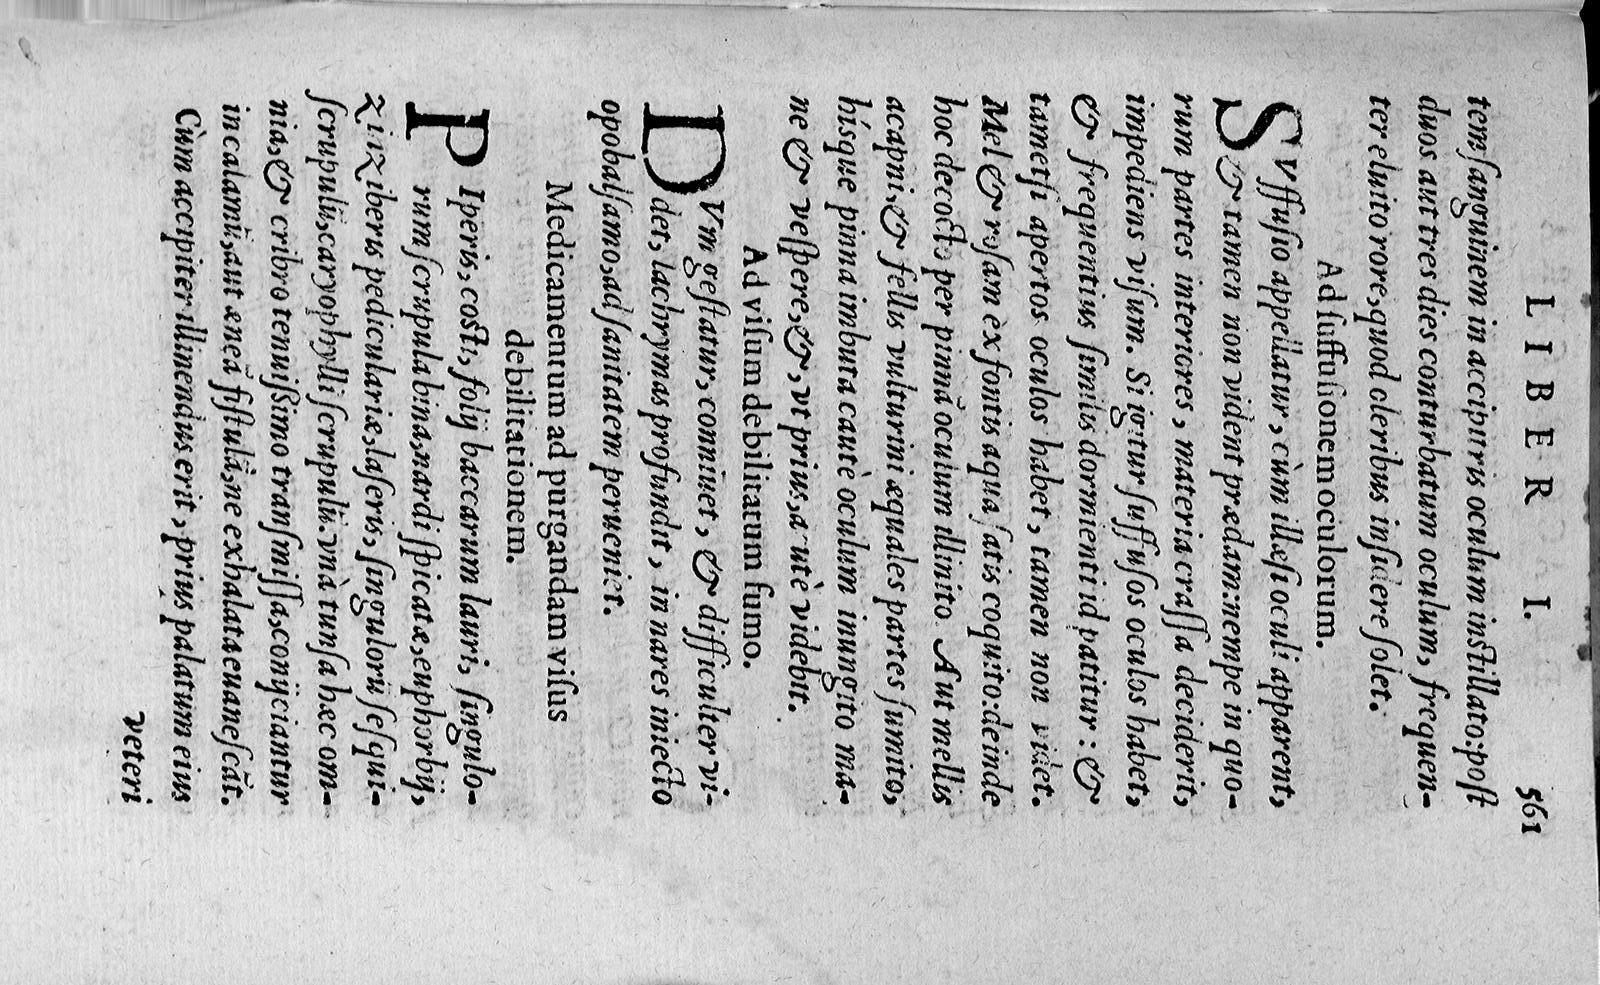 LIBER I. 561
tem ſanguinem in accipitris oculum inſtillato:poſt
duos aut tres dies conturbatum oculum, frequen-
ter eluito rore, quod oleribus inſidere ſolet.
Ad ſuffuſionem oculorum.
SVffuſio appellatur, cùm illæſi oculi apparent,
& tamen non vident prædam:nempe in quo-
rum partes interiores, materia craſſa deciderit,
impediens viſum. Si igitur ſuffuſos oculos habet,
& frequentius ſimilis dormienti id patitur: &
tametſi apertos oculos habet, tamen non videt.
Mel & roſam ex fontis aqua ſatis coquito:deinde
hoc decocto per pinnā oculum illinito. Aut mellis
acapni, & fellis vulturini æquales partes ſumito,
híſque pinna imbuta cautè oculum inungito ma-
ne & veſpere, &, vt prius, acutè videbit.
Ad viſum debilitatum fumo.
DVm geſtatur, conniuet, & difficulter vi-
det, lachrymas profundit, in nares iniecto
opobalſamo, ad ſanitatem perueniet.
Medicamentum ad purgandam viſus
debilitationem.
PIperis, coſti, folij baccarum lauri, ſingulo-
rum ſcrupula bina, nardi ſpicatæ, euphorbij,
zinziberis pediculariæ, laſeris, ſingulorū ſeſqui-
ſcrupulū, caryophylli ſcrupulū. vnà tunſa hæc om-
nia, & cribro tenuißimo tranſmiſſa, conijciantur
in calamū, aut æneā fiſtulā, ne exhalata euaneſcāt.
Cùm accipiter illinendus erit, prius palatum eius
veteri